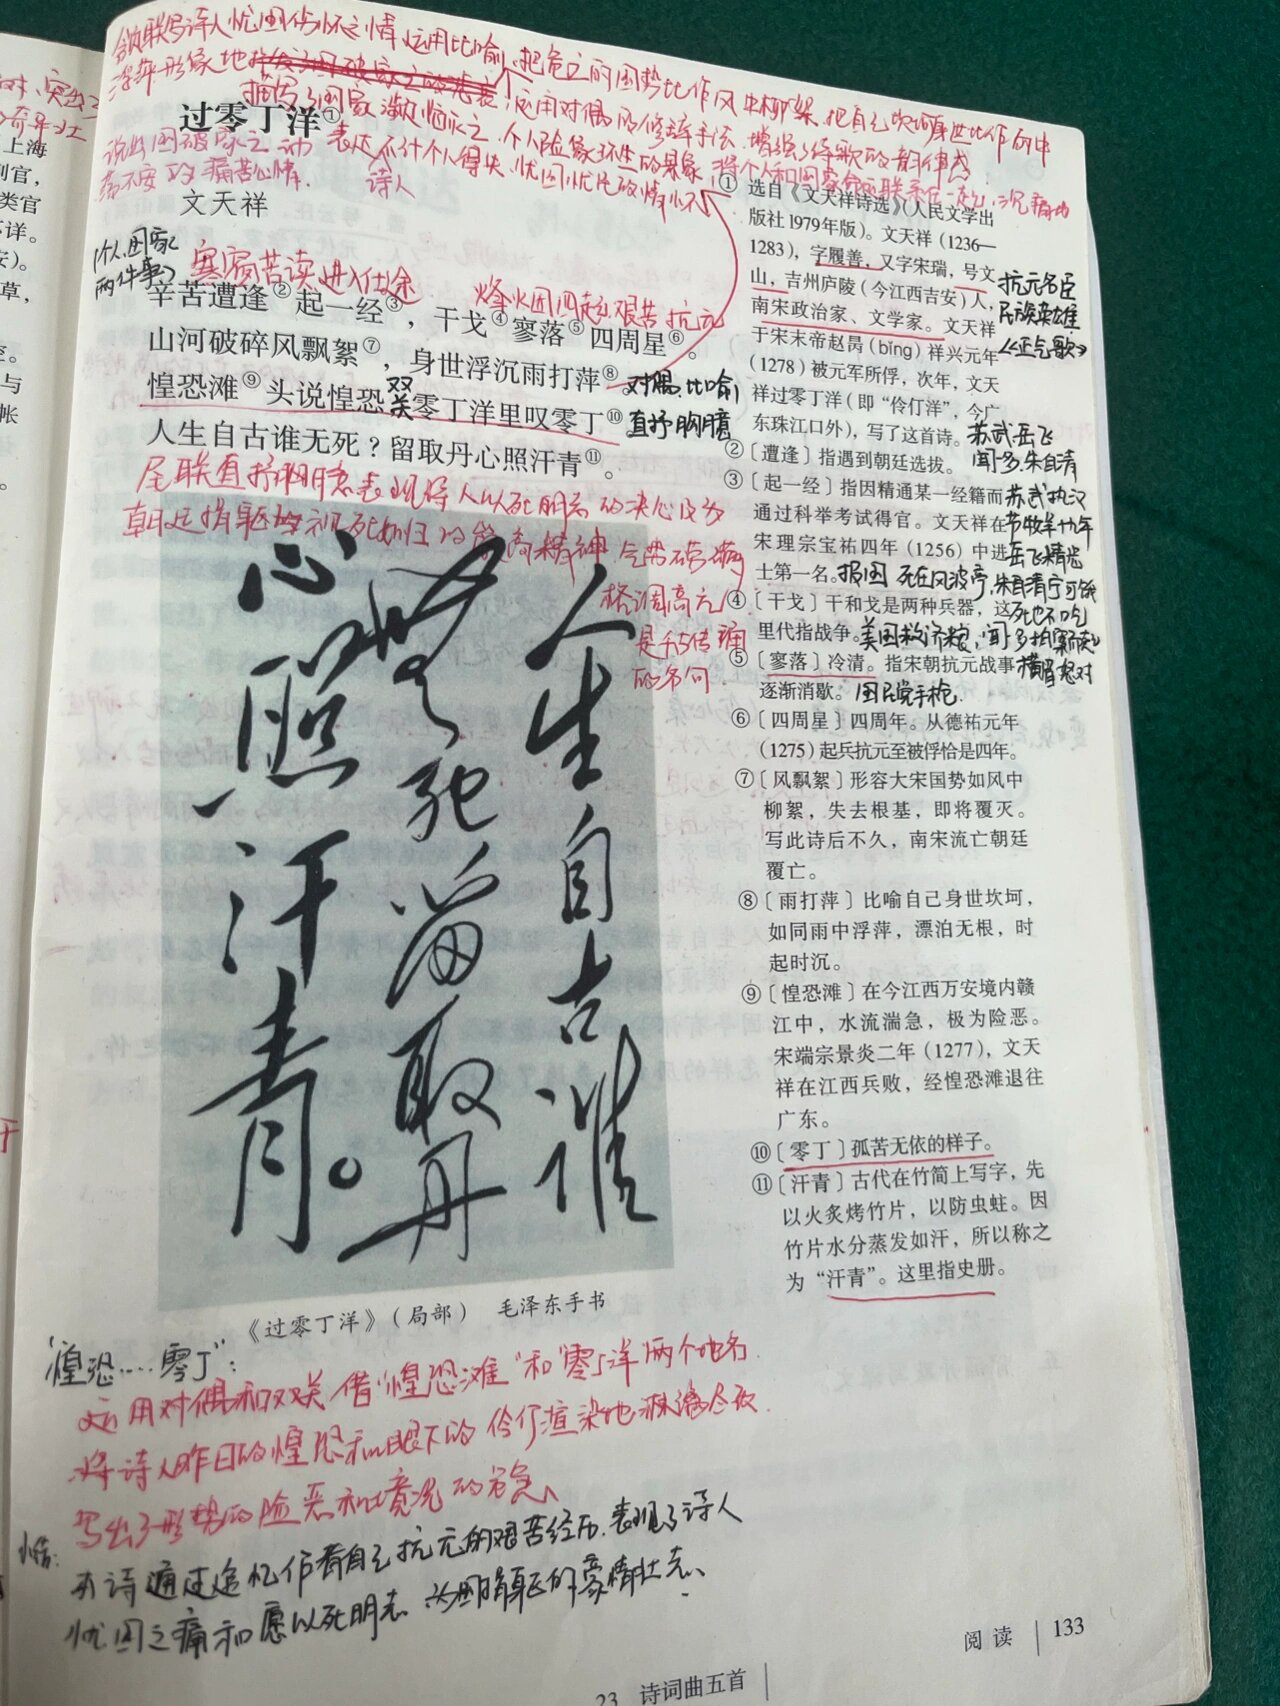 颔联写诗人忧国伤怀之情 运用比喻、把危亡的国势比作风中柳絮、把自己坎坷身世比作雨中
浮萍 形象地
描写了国家濒临灭亡、个人险象环生的景象、运用对偶的修辞手法、增强了诗歌的韵律感
说出国破家亡 动荡不安的痛苦心情、
表达 不计个人得失、忧国忧民的情怀
诗人
将个人和国家命运联系在一起
过零丁洋①
文天祥
个人、国家
两件事
寒窗苦读 进入仕途
烽火四起 艰苦抗元
辛苦遭逢②起一经③，干戈④寥落⑤四周星⑥。
山河破碎风飘絮⑦，身世浮沉雨打萍⑧
对偶、比喻
惶恐滩⑨头说惶恐 零丁洋里叹零丁⑩
双关
直抒胸臆
人生自古谁无死？留取丹心照汗青⑪。
尾联直抒胸臆 表现诗人以死明志的决心
视死如归的 精神 气势磅礴
格调高亢
是千古传诵
的名句
人生自古谁
无死留取丹
心照汗青。
《过零丁洋》（局部） 毛泽东手书
“惶恐……零丁”：
运用对偶和双关 借“惶恐滩”和“零丁洋”两个地名
将诗人昨日的惶恐和眼下的伶仃渲染地淋漓尽致
写出了形势的险恶和境况的危急、
小结：
本诗通过追忆作者自己抗元的艰苦经历、表现了诗人
忧国之痛和愿以死明志、为国捐躯的豪情壮志、
① 选自《文天祥诗选》（人民文学出
版社1979年版）。文天祥（1236—
1283），字履善，又字宋瑞，号文
山，吉州庐陵（今江西吉安）人，
南宋政治家、文学家。文天祥
于宋末帝赵昺（bǐng）祥兴元年
（1278）被元军所俘，次年，文天
祥过零丁洋（即“伶仃洋”，今广
东珠江口外），写了这首诗。
抗元名臣
民族英雄
《正气歌》
苏武 岳飞
闻一多 朱自清
②〔遭逢〕指遇到朝廷选拔。
③〔起一经〕指因精通某一经籍而
通过科举考试得官。文天祥在
宋理宗宝祐四年（1256）中进
士第一名。
苏武执汉
节牧羊十九年
岳飞精忠
报国 死在风波亭，朱自清宁可饿
死也不吃
美国救济粮，闻一多拍案而起
横眉怒对
国民党手枪
④〔干戈〕干和戈是两种兵器，这
里代指战争。
⑤〔寥落〕冷清。指宋朝抗元战事
逐渐消歇。
⑥〔四周星〕四周年。从德祐元年
（1275）起兵抗元至被俘恰是四年。
⑦〔风飘絮〕形容大宋国势如风中
柳絮，失去根基，即将覆灭。
写此诗后不久，南宋流亡朝廷
覆亡。
⑧〔雨打萍〕比喻自己身世坎坷，
如同雨中浮萍，漂泊无根，时
起时沉。
⑨〔惶恐滩〕在今江西万安境内赣
江中，水流湍急，极为险恶。
宋端宗景炎二年（1277），文天
祥在江西兵败，经惶恐滩退往
广东。
⑩〔零丁〕孤苦无依的样子。
⑪〔汗青〕古代在竹简上写字，先
以火炙烤竹片，以防虫蛀。因
竹片水分蒸发如汗，所以称之
为“汗青”。这里指史册。
阅读 133
23 诗词曲五首